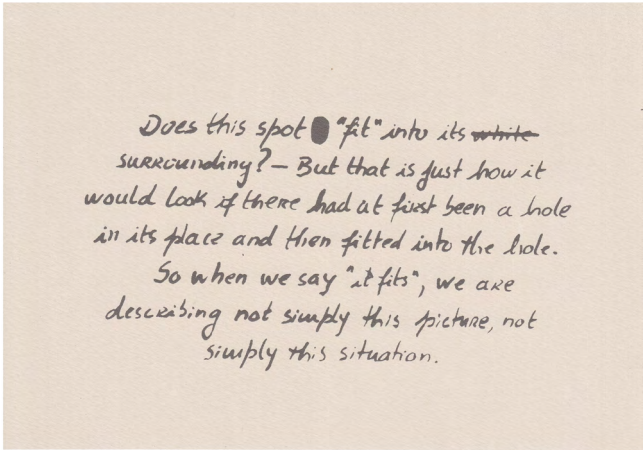 Does this spot "fit" into its white
surrounding? – But that is just how it
would look if there had at first been a hole
in its place and then fitted into the hole.
So when we say "it fits", we are
describing not simply this picture, not
simply this situation.